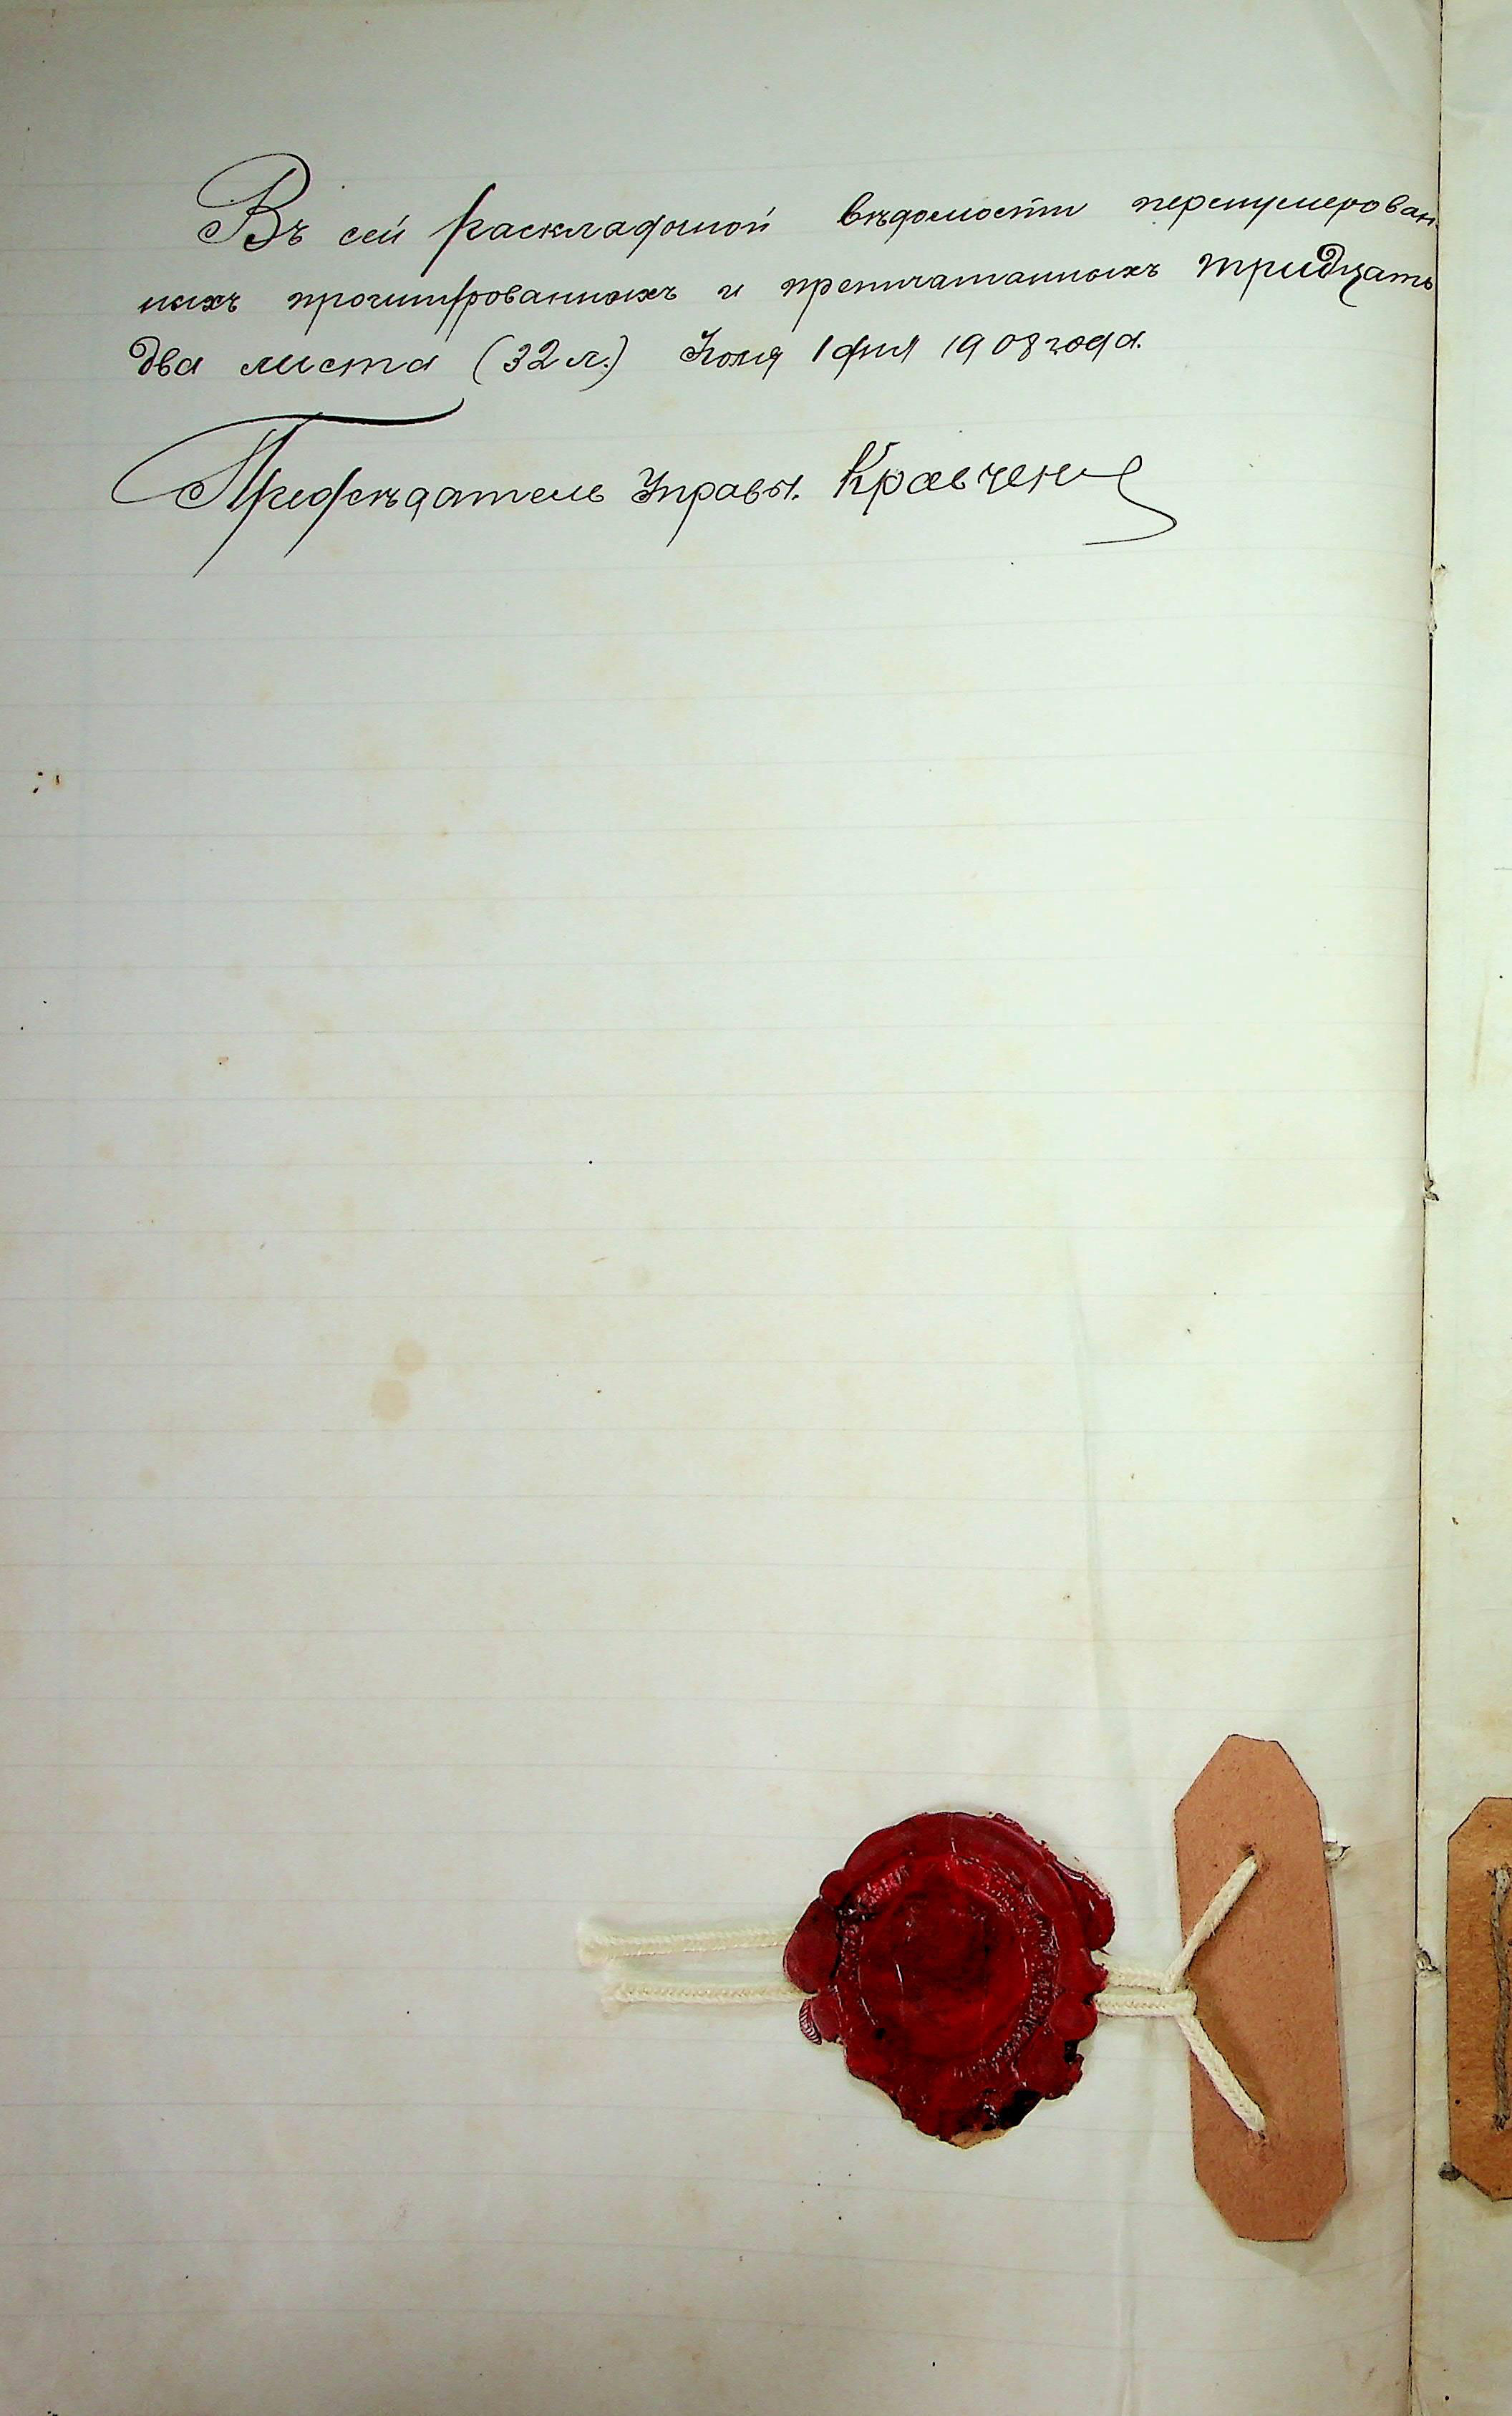 Въ сей раскладочной вѣдомости перенумерован
ныхъ прошнурованныхъ и препечатанныхъ тридцать
два листа (32 л.) Іюля 1 дня 1908 года.
Предсѣдатель Управы. Кравченко